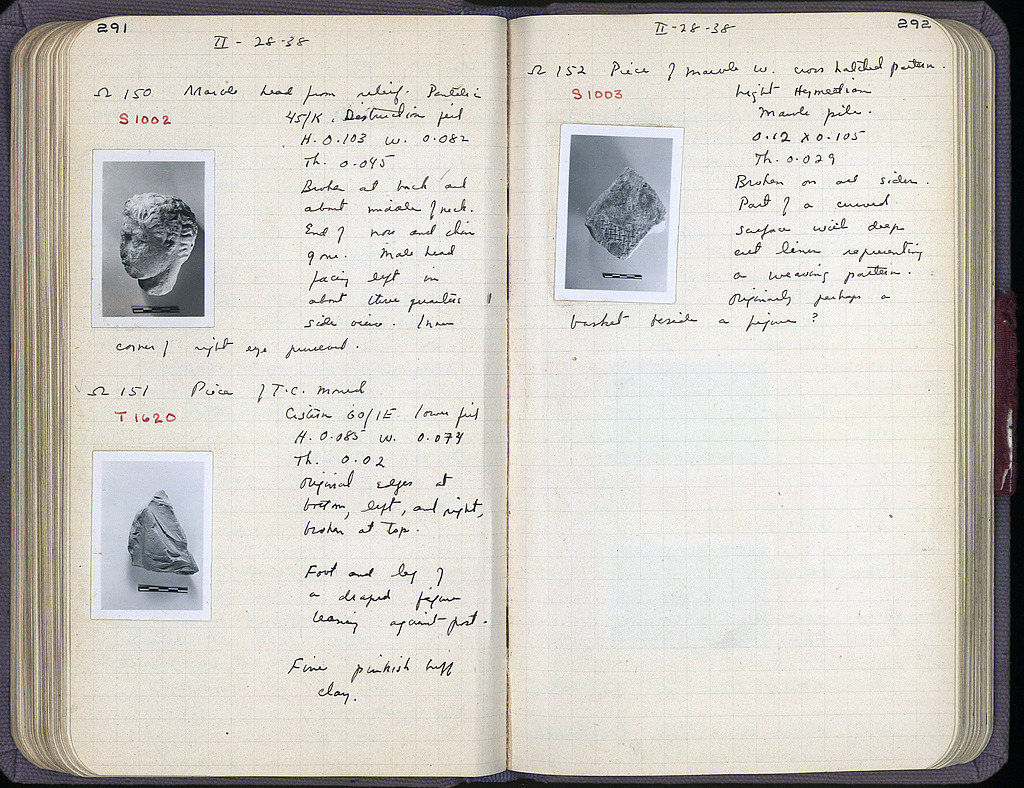 291
II - 28-38
Ω 150 Marble head from relief. Pentelic
S 1002
45/K. Destruction fill
H. 0.103 W. 0.082
Th. 0.045
Broken at back and
about middle of neck.
End of nose and chin
gone. Male head
facing left in
about three quarters
side view. Inner
corner of right eye
Ω 151 Piece of T.C. mould
T 1620
Cistern 60/ΙΕ. lower fill
H. 0.085 W. 0.074
Th. 0.02
Original edges at
bottom, left, and right,
broken at top.
Foot and leg of
a draped figure
leaning against post.
Fine pinkish buff
clay.
292
II-28-38
Ω 152 Piece of marble w. cross hatched pattern.
S 1003
Light Hymettian
Marble pile.
0.12 x 0.105
Th. 0.029
Broken on all sides.
Part of a curved
surface with deep
cut lines representing
a weaving pattern.
Originally perhaps a
basket beside a figure ?